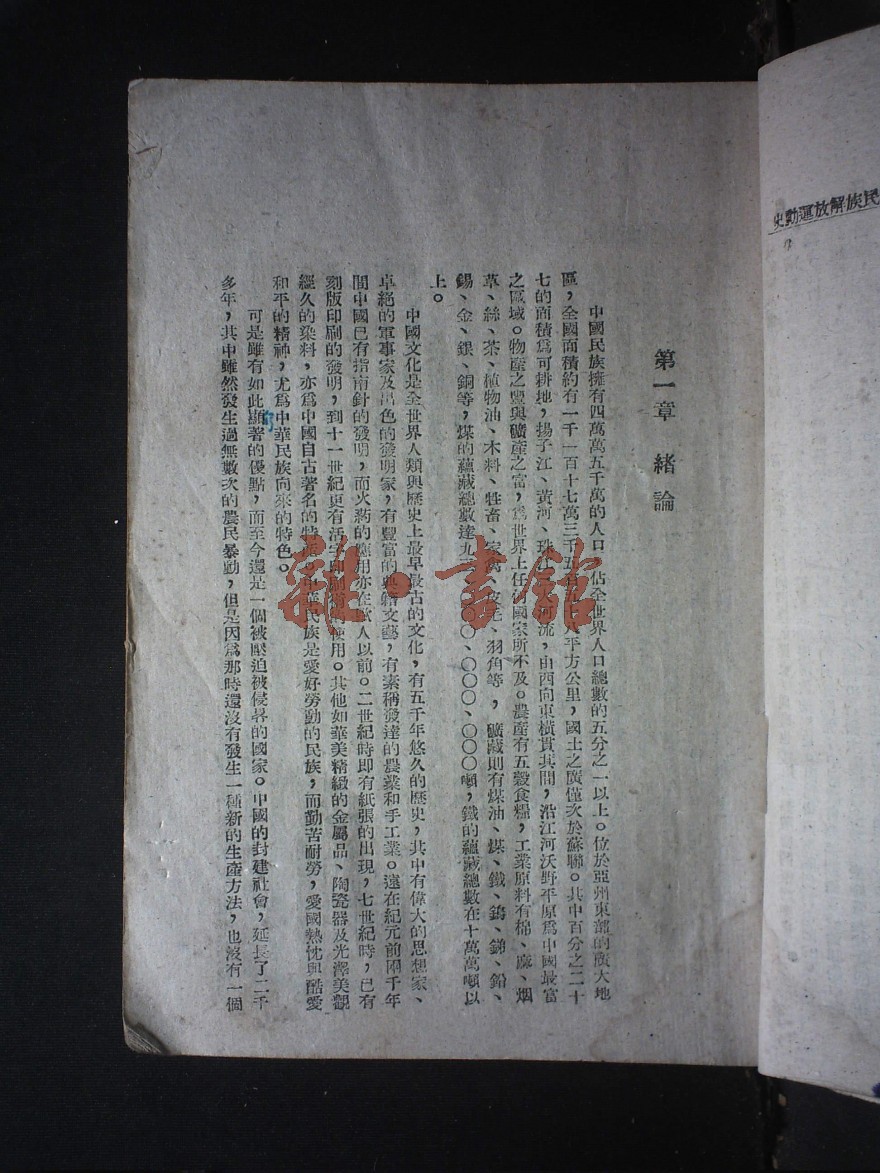 民族解放運動史
第一章 緒論
中國民族擁有四萬萬五千萬的人口,佔全世界人口總數的五分之一以上。位於亞州東部的廣大地
區,全國面積約有一千一百十七萬三千五百 八平方公里,國土之廣僅次於蘇聯。其中百分之二十
七的面積爲可耕地,揚子江、黃河、珠江 河流,由西向東橫貫其間,沿江河沃野平原爲中國最富
之區域。物產之豐與礦產之富,爲世界上任何國家所不及。農產有五穀食糧,工業原料有棉、麻、烟
草、絲、茶、植物油、木料、牲畜、家禽、皮毛、羽角等,礦藏則有煤油、煤、鐵、鎢、銻、鉛、
錫、金、銀、銅等,煤的蘊藏總數達九 〇〇、〇〇〇、〇〇〇噸,鐵的蘊藏總數在十萬萬噸以
上。
中國文化是全世界人類與歷史上最早最古的文化,有五千年悠久的歷史,其中有偉大的思想家、
卓絕的軍事家及出色的發明家,有豐富的典籍文藝,有素稱發達的農業和手工業。遠在紀元前兩千年
間中國已有指南針的發明,而火药的應用亦在歐人以前。二世紀時即有紙張的出現,七世紀時,已有
刻版印刷的發明,到十一世紀更有活字印刷 使用。其他如華美精緻的金屬品、陶瓷器及光澤美觀
經久的染料,亦爲中國自古著名的特 中華民族是愛好勞動的民族,而勤苦耐勞,愛國熱忱與酷愛
和平的精神,尤爲中華民族向來的特色。
可是雖有如此顯著的優點,而至今還是一個被壓迫被侵畧的國家。中國的封建社會,延長了二千
多年,其中雖然發生過無數次的農民暴動,但是因爲那時還沒有發生一種新的生產方法,也沒有一個
雜·書館